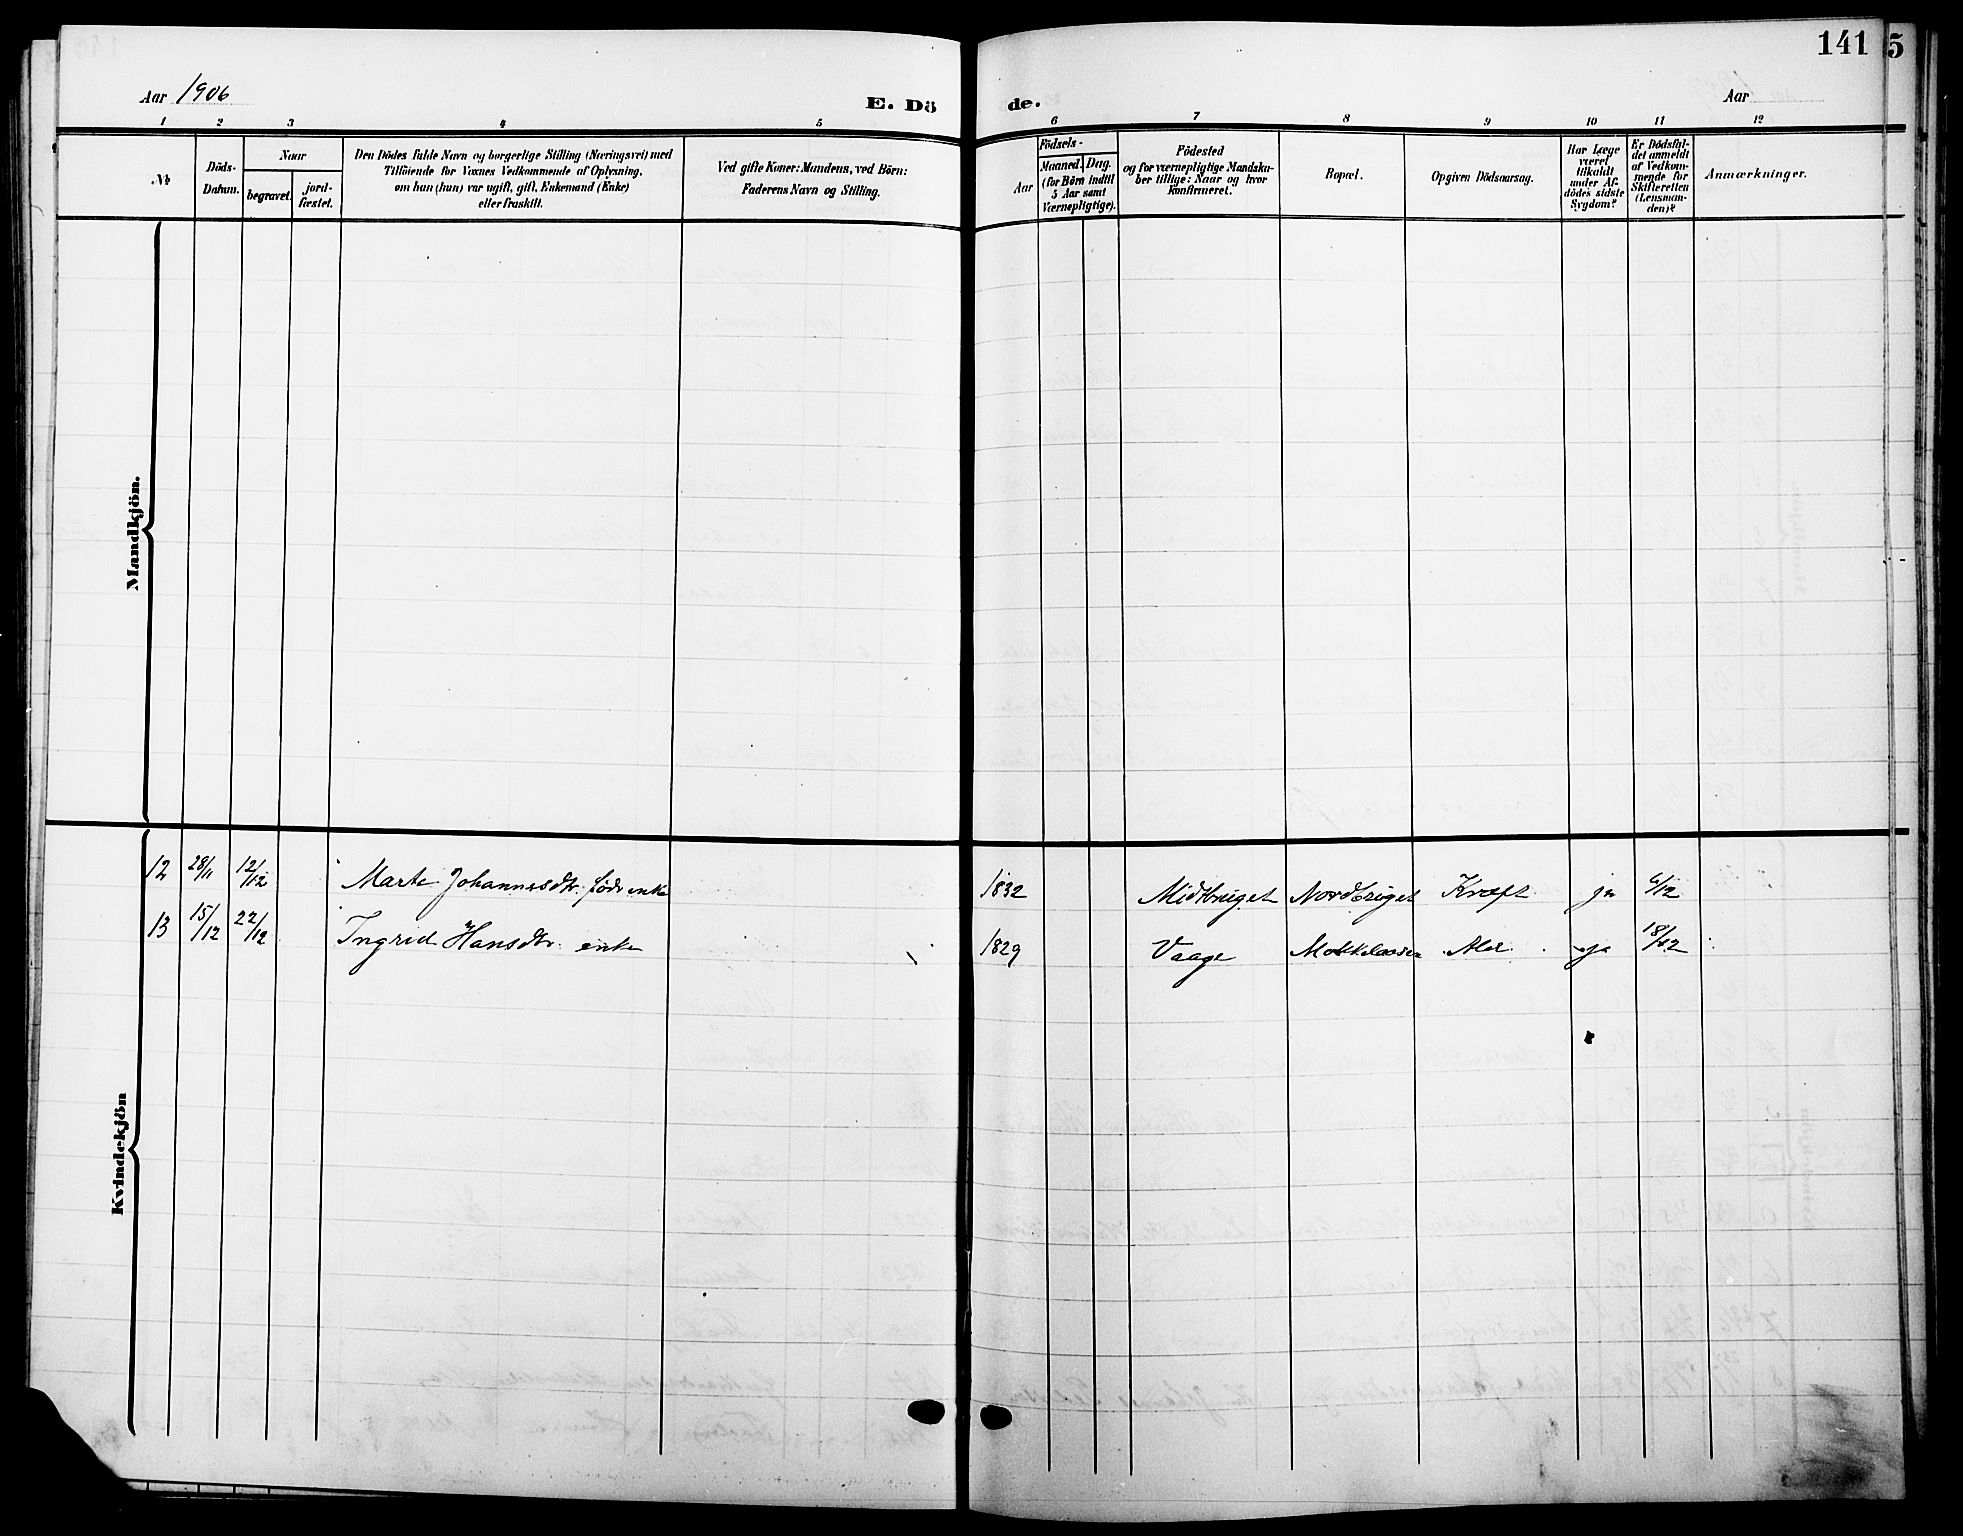 141
5
Aar 1906
E. Dö
de.
Aar
1 2 3 4 5
6 7 8 9 10 11 12
No
Döds-
Datum.
Naar
begravet.
jord-
fæstet.
Den Dödes fulde Navn og borgerlige Stilling (Næringsvei) med
Tilföiende for Voxnes Vedkommende af Oplysning,
om han (hun) var ugift, gift, Enkemand (Enke)
eller fraskilt.
Ved gifte Koner: Mandens, ved Börn:
Faderens Navn og Stilling.
Födsels-
Aar
Maaned. Dag.
(for Börn indtil
5 Aar samt
Værnepligtige).
Födested
og for værnepligtige Mandska-
ber tillige: Naar og hvor
konfirmeret.
Bopæl.
Opgiven Dödsaarsag.
Har Læge
været
tilkaldt
under Af-
dödes sidste
Sygdom?
Er Dödsfal-
det anmeldt
af Vedkom-
mende for
Skifteretten
(Lensman-
den)?
Anmærkninger.
Mandkjön.
Kvindekjön
12 28/11 12/12 Marte Johannesdtr. fødr enke 1832 Midtbruget Nordbruget Kræft ja 6/12
13 15/12 22/12 Ingrid Hansdtr. enke 1829 Vaage Alder 18/12